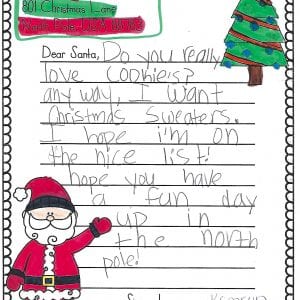 801 Christmas Lane
North Pole,
Dear Santa, Do you really
love Cookies?
any way, I want
Christmas Sweaters.
I hope i'm on
the nice list!
hope you have
a fun day
up in
the north
pole!